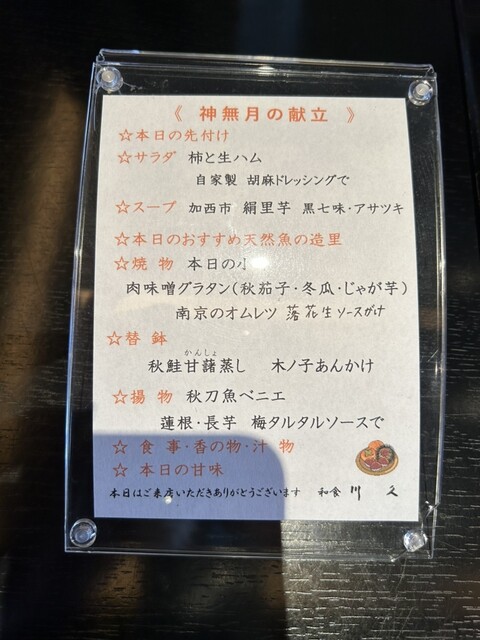 《 神無月の献立 》
☆本日の先付け
☆サラダ 柿と生ハム
自家製 胡麻ドレッシングで
☆スープ 加西市 絹里芋 黒七味・アサツキ
☆本日のおすすめ天然魚の造里
☆焼物 本日の
肉味噌グラタン(秋茄子・冬瓜・じゃが芋)
南京のオムレツ 落花生ソースがけ
☆替鉢
かんしょ
秋鮭甘藷蒸し 木ノ子あんかけ
☆揚物 秋刀魚ベニエ
蓮根・長芋 梅タルタルソースで
☆食事・香の物・汁物
☆本日の甘味
本日はご来店いただきありがとうございます 和食 川文